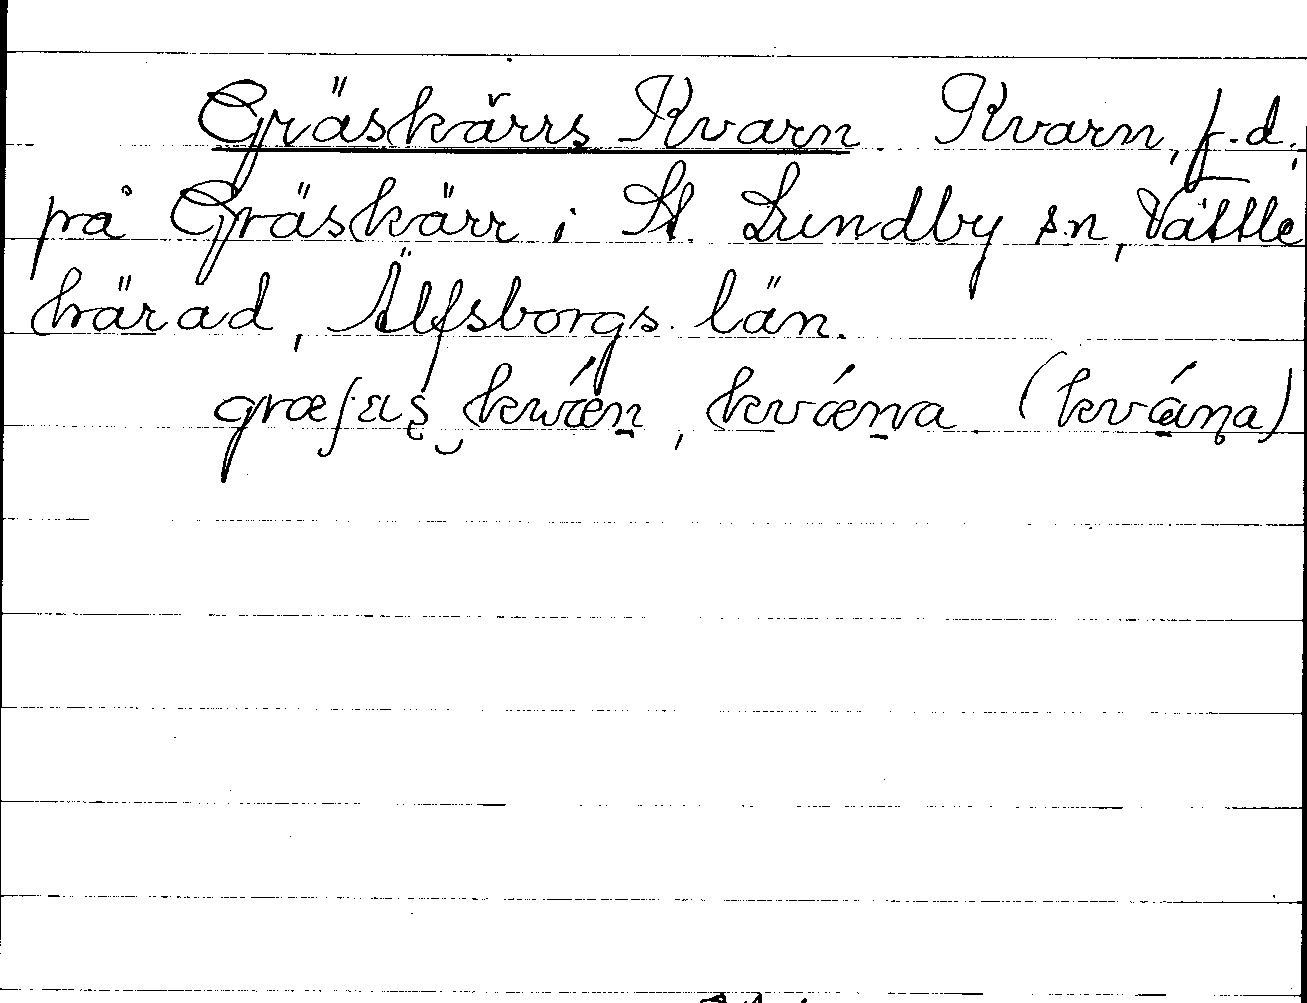 Gräskärrs Kvarn. Kvarn, f.d.,
på Gräskärr i St. Lundby sn, Vättle
härad, Älfsborgs län.
kvǽṉa